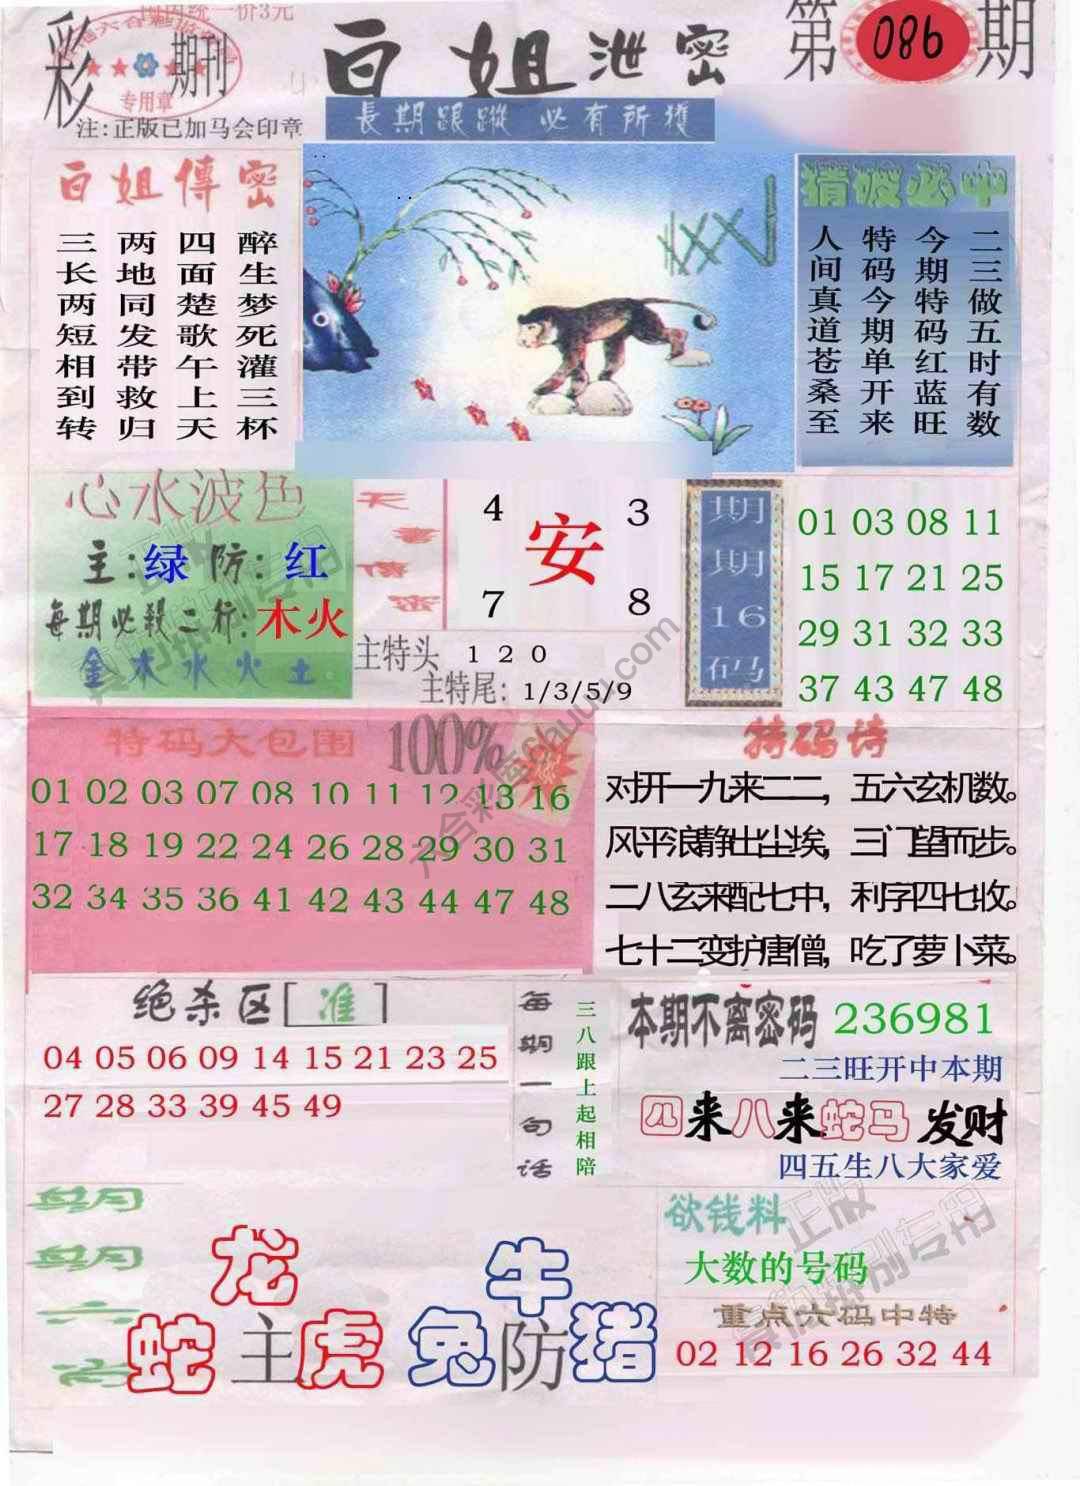 国统一价3元
彩 期刊
专用章
白姐泄密
第 086 期
注:正版已加马会印章
長期跟蹤 必有所獲
白姐傳密
三长两短相到转
两地同发带救归
四面楚歌午上天
醉生梦死灌三杯
猜破必中
人间真道苍桑至
特码今期单开来
今期特码红蓝旺
二三做五时有数
心水波色
主:绿 防:红
每期必殺二行:木火
金木水火土
天書傳密
4 3
安
7 8
主特头 1 2 0
主特尾: 1/3/5/9
期期16码
01 03 08 11
15 17 21 25
29 31 32 33
37 43 47 48
特码大包围 100%
01 02 03 07 08 10 11 12 13 16
17 18 19 22 24 26 28 29 30 31
32 34 35 36 41 42 43 44 47 48
特码诗
对开一九来二二，五六玄机数。
风平浪静出尘埃，三门望而步。
二八玄来配七中，利字四七收。
七十二变护唐僧，吃了萝卜菜。
绝杀区[准]
04 05 06 09 14 15 21 23 25
27 28 33 39 45 49
每期一句话
三八跟上起相陪
本期不离密码 236981
二三旺开中本期
四来八来蛇马发财
四五生八大家爱
龙
蛇 主 虎
牛
兔 防 猪
欲钱料
大数的号码
重点六码中特
02 12 16 26 32 44